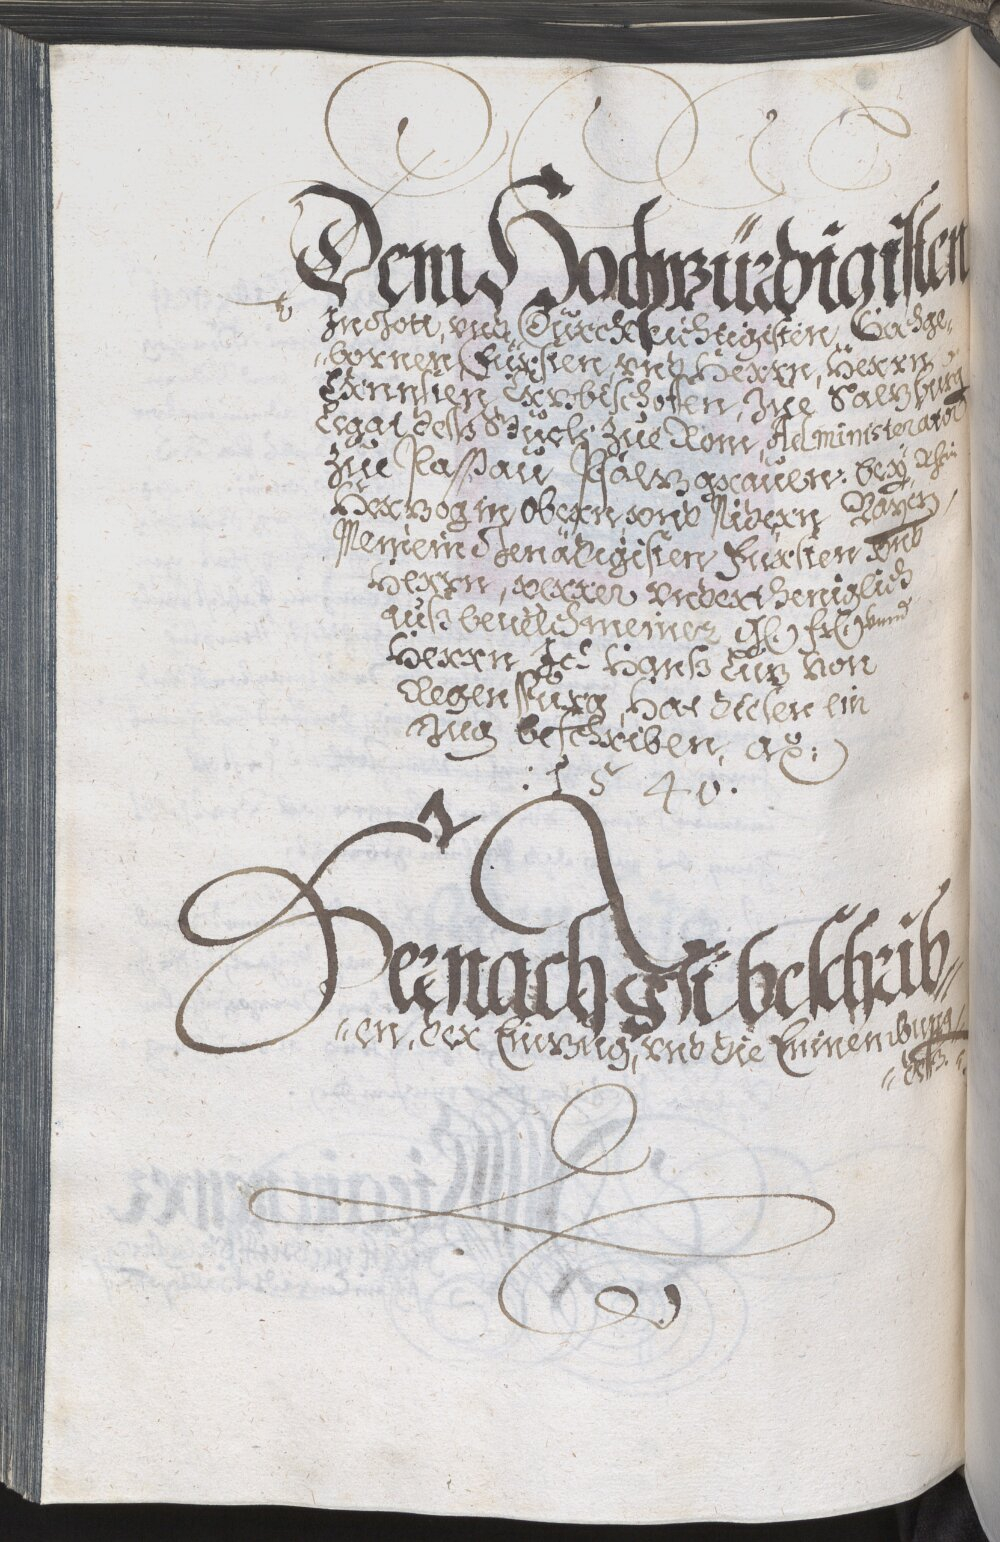 Dem Hochwürdigisten
In Gott, vnd Dürchleichtigisten, Hochge-
bornen Fürsten vnd Herrn, Herrn
Ernnsten Ertzbischoffen, Zue Saltzbürg
Legat deß Stüels zue Rom, Administerator
Zue Passau Pfaltzgrauen bey Rhein
Hertzog in obern vnd Nidern Bayrn,
Meinem Genädigisten Fürsten vnd
Herrn, vnderthenigklich
auß beuelch meiner G(.) Fr(.) vnnd
Herrn Ich Hanß Lütz von
Regenspurg, hat disen ein
Zug beschriben, a%:
: 1 5 4 0 .
Hernach Ist beschrib-
-en, der Einzug, vnd die Einembung